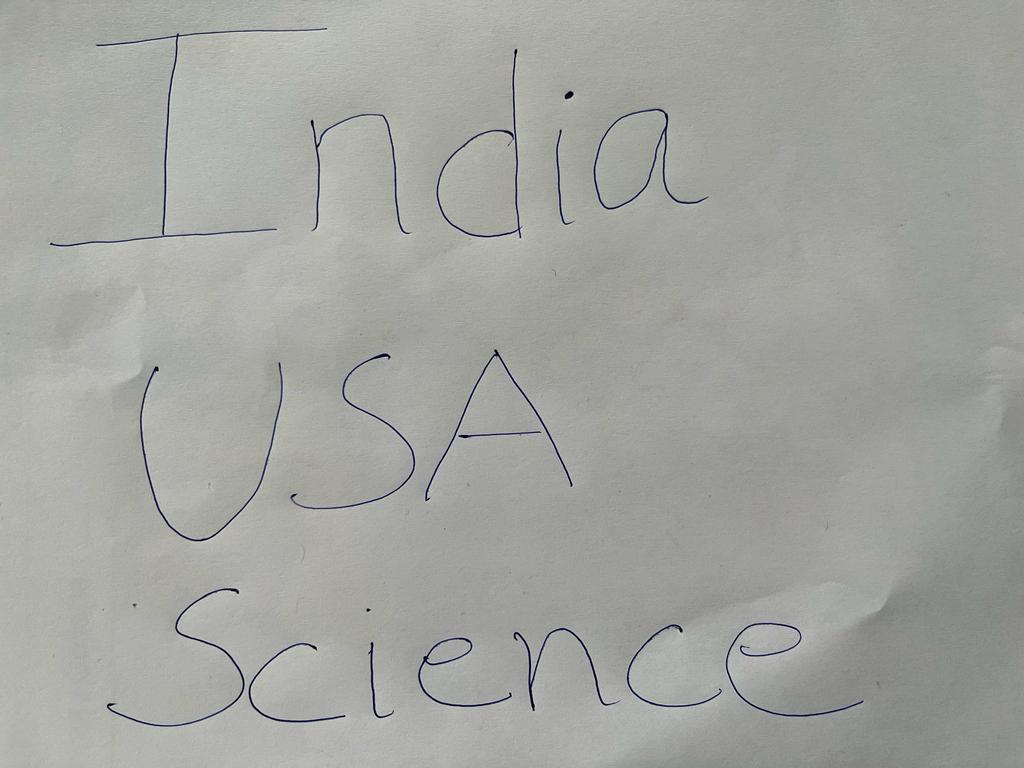 India
USA
Science